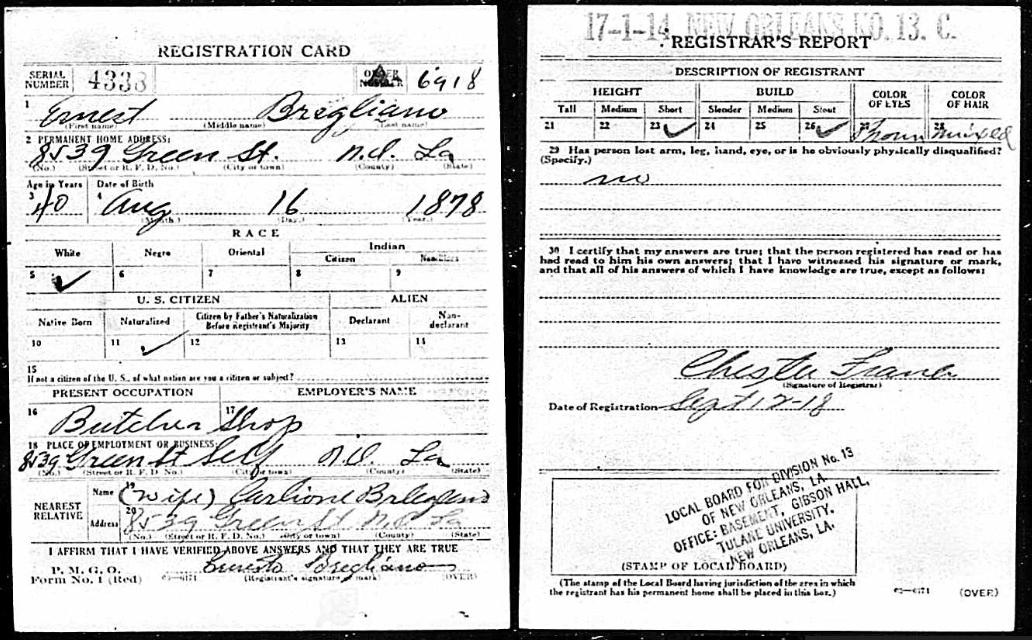 REGISTRATION CARD
SERIAL NUMBER 4338 ORDER NUMBER 6918
1 Ernest Bregliano
(First name) (Middle name) (Last name)
2 PERMANENT HOME ADDRESS:
8539 Green St. N.O. La
(No.) (Street or R. F. D. No.) (City or town) (County) (State)
Age in Years Date of Birth
3 40 4 Aug 16 1878
(Month.) (Day.) (Year.)
RACE
White Negro Oriental Indian
Citizen Noncitizen
5 ✓ 6 7 8 9
U. S. CITIZEN ALIEN
Native Born Naturalized Citizen by Father's Naturalization Before Registrant's Majority Declarant Non-declarant
10 11 ✓ 12 13 14
15
If not a citizen of the U. S., of what nation are you a citizen or subject?
PRESENT OCCUPATION EMPLOYER'S NAME
16 Butcher 17 Shop
18 PLACE OF EMPLOYMENT OR BUSINESS:
8539 Green St Self N.O. La
(No.) (Street or R. F. D. No.) (City or town) (County) (State)
NEAREST RELATIVE Name 19 (Wife)
Address 20 8539 Green St N.O. La
(No.) (Street or R. F. D. No.) (City or town) (County) (State)
I AFFIRM THAT I HAVE VERIFIED ABOVE ANSWERS AND THAT THEY ARE TRUE
P. M. G. O.
Form No. 1 (Red) 03—6171 Ernesto Bregliano
(Registrant's signature or mark) (OVER)
17-1-14 NEW ORLEANS NO. 13. C.
REGISTRAR'S REPORT
DESCRIPTION OF REGISTRANT
HEIGHT BUILD COLOR OF EYES COLOR OF HAIR
Tall Medium Short Slender Medium Stout
21 22 23 ✓ 24 25 26 ✓ 27 Brown 28 mixed
29 Has person lost arm, leg, hand, eye, or is he obviously physically disqualified?
(Specify.)
no
30 I certify that my answers are true; that the person registered has read or has
had read to him his own answers; that I have witnessed his signature or mark,
and that all of his answers of which I have knowledge are true, except as follows:
Chester
(Signature of Registrar)
Date of Registration Sept 12-18
LOCAL BOARD FOR DIVISION No. 13
OF NEW ORLEANS, LA.
OFFICE: BASEMENT, GIBSON HALL,
TULANE UNIVERSITY,
NEW ORLEANS, LA.
(STAMP OF LOCAL BOARD)
(The stamp of the Local Board having jurisdiction of the area in which
the registrant has his permanent home shall be placed in this box.)
03—6171 (OVER)